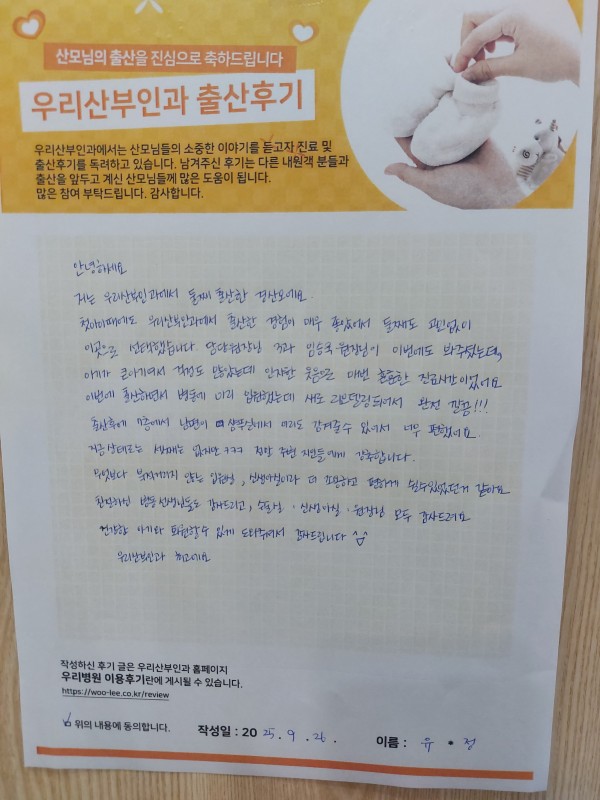 산모님의 출산을 진심으로 축하드립니다
우리산부인과 출산후기
우리산부인과에서는 산모님들의 소중한 이야기를 듣고자 진료 및
출산후기를 독려하고 있습니다. 남겨주신 후기는 다른 내원객 분들과
출산을 앞두고 계신 산모님들께 많은 도움이 됩니다.
많은 참여 부탁드립니다. 감사합니다.
안녕하세요
저는 우리산부인과에서 둘째 출산한 경산모에요.
첫아이때에도 우리산부인과에서 출산한 경험이 매우 좋았어서 둘째도 고민없이
이곳으로 선택했습니다. 담당원장님 3과 임승욱 원장님이 이번에도 봐주셨는데,
아기가 큰아기여서 걱정도 많았는데 인자한 웃음으로 매번 훌륭한 진료시간이었어요
이번에 출산하면서 병동에 미리 입원했는데 새로 리모델링되어서 완전 깔끔!!!
출산후에 7층에서 남편이 샴푸실에서 머리도 감겨줄수 있어서 너무 편했어요.
지금상태로는 셋째는 없지만 ㅋㅋㅋ 정말 주변 지인들에게 강추합니다.
무엇보다 입원실, 신생아실이라 더 조용하고 편하게 쉴수있었던거 같아요
친절하신 병동선생님들도 감사드리고, 수술실 · 신생아실 · 원장님 모두 감사드려요
건강한 아기와 퇴원할수 있게 도와주셔서 감사드립니다 ^^
우리산부인과 최고에요
작성하신 후기 글은 우리산부인과 홈페이지
우리병원 이용후기란에 게시될 수 있습니다.
https://woo-lee.co.kr/review
위의 내용에 동의합니다.
작성일 : 20 25. 9. 이름 : 유 * 정